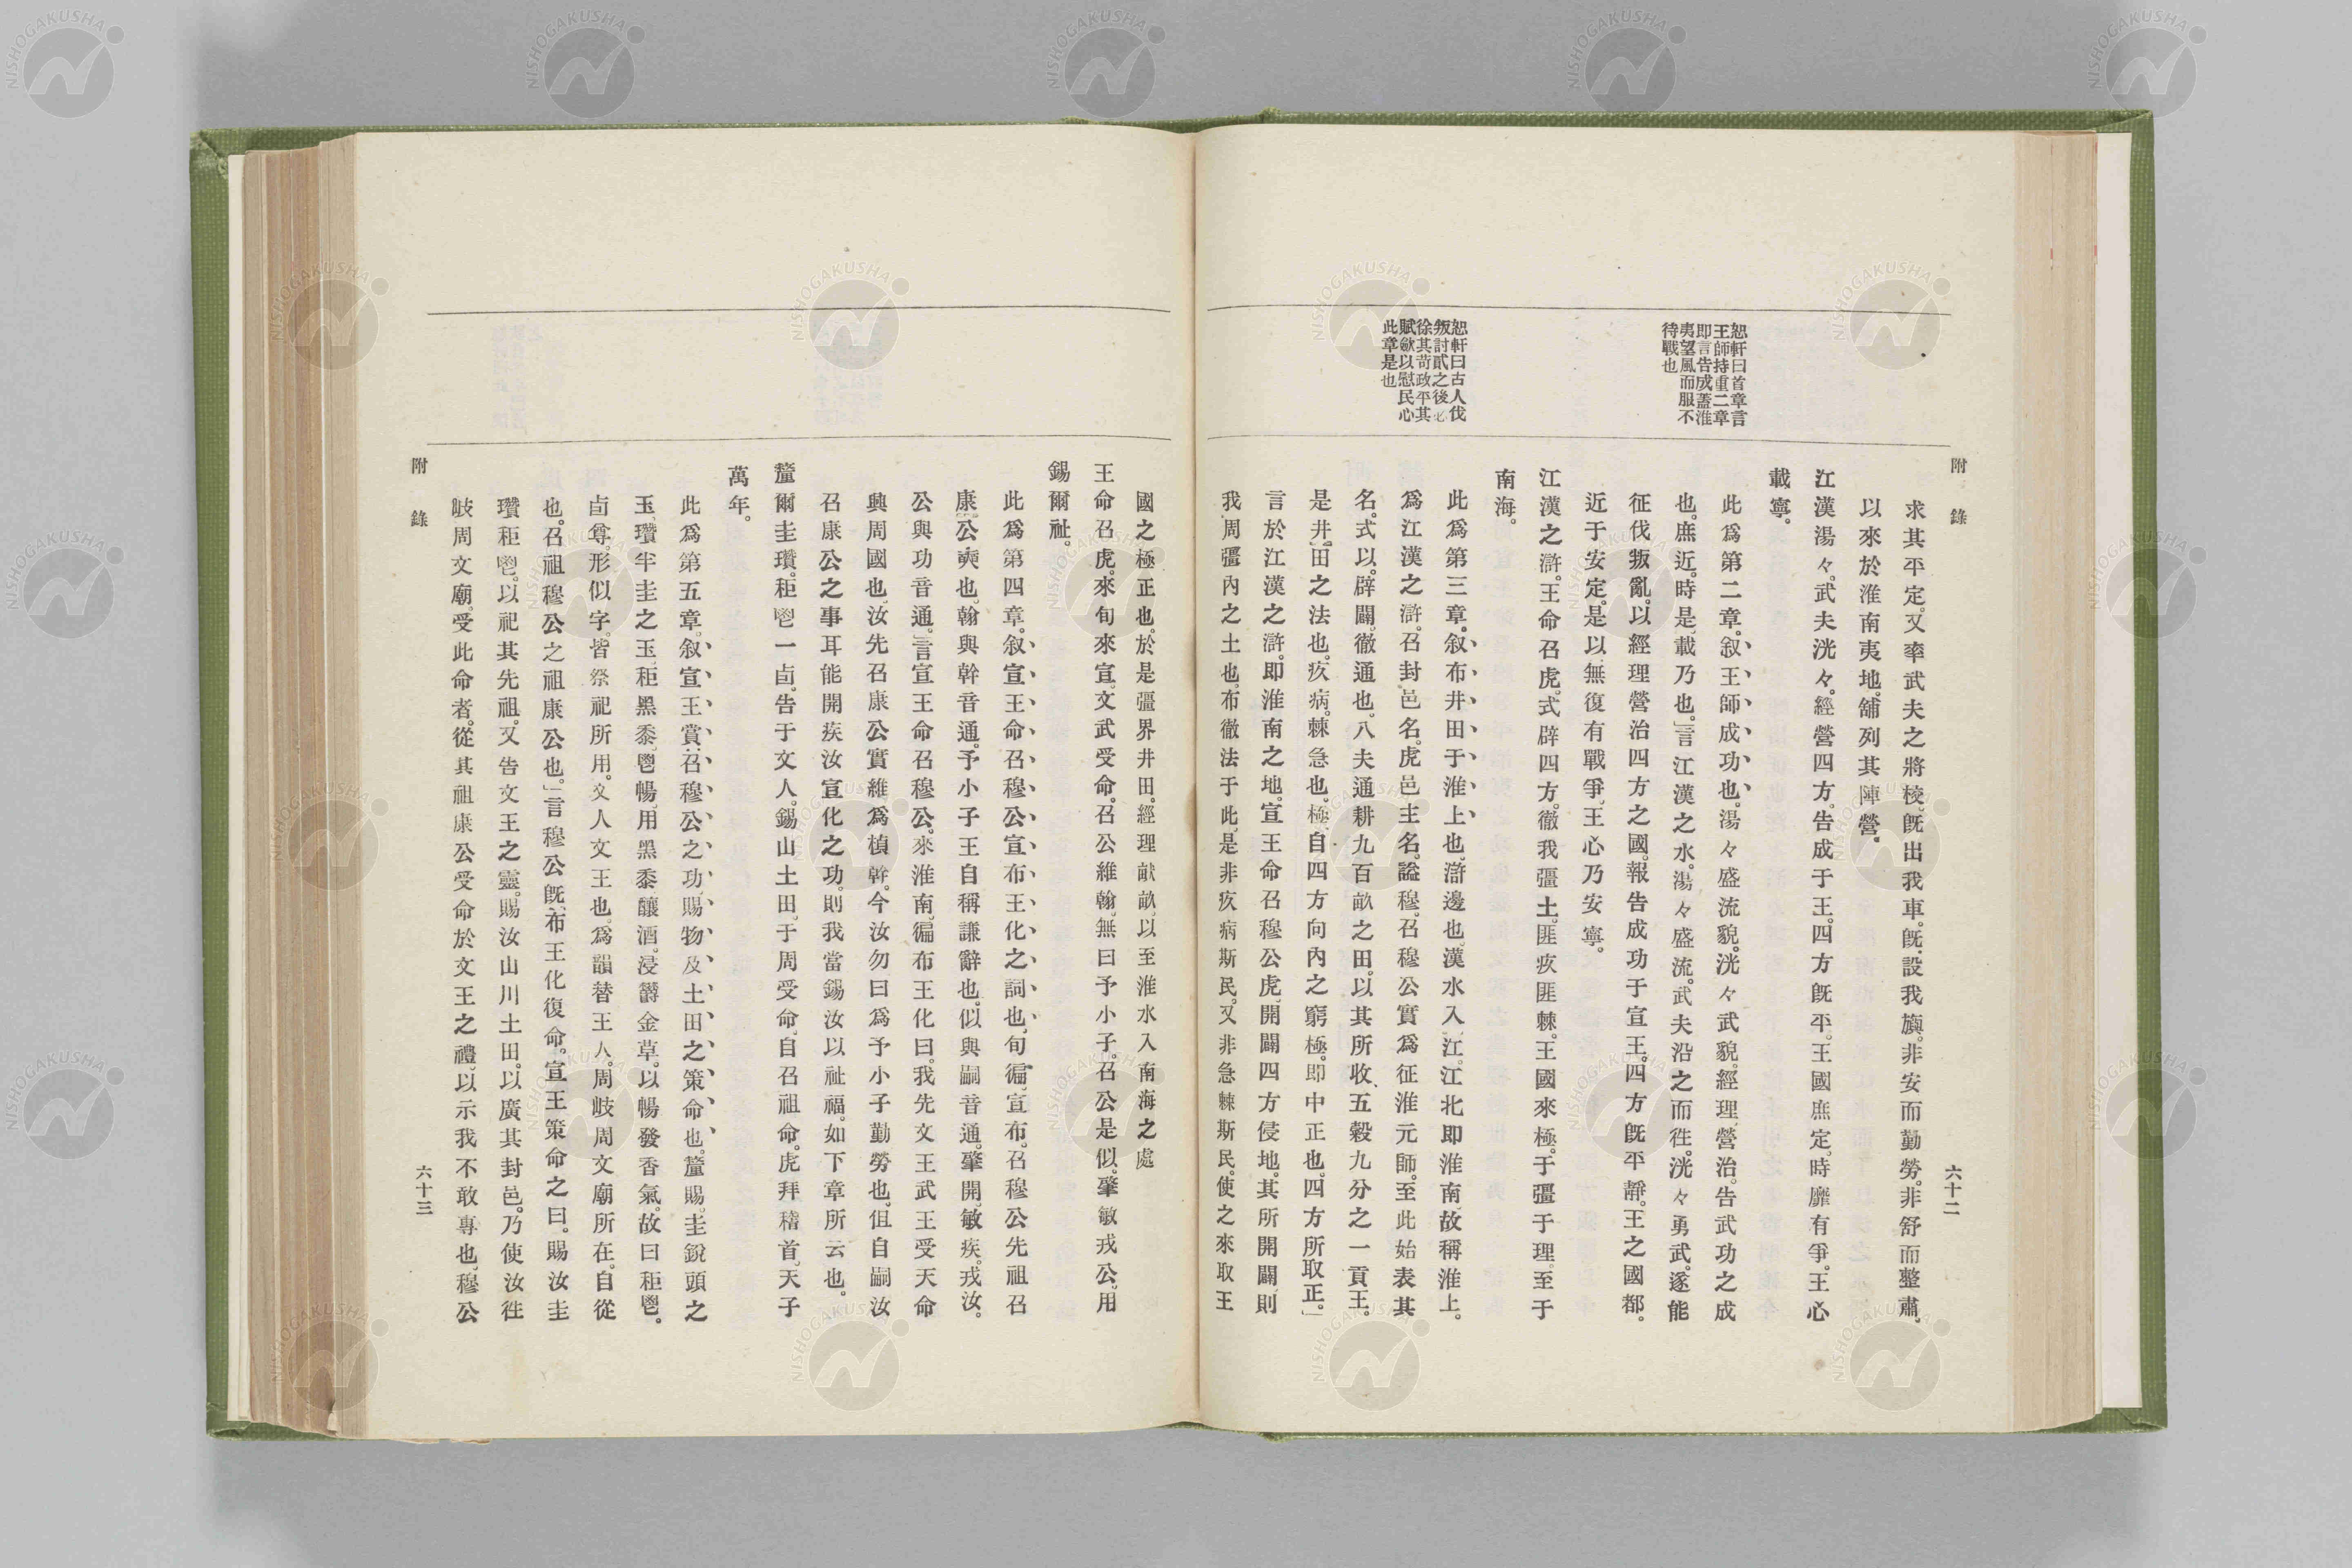 附錄
六十二
恕軒曰首章言
王師持重二章
即言告成蓋淮
夷望風而服不
待戰也
恕軒曰古人伐
叛討貳之後必
徐其苛政平其
賦斂以慰民心
此章是也
求其平定。又率武夫之將校。既出我車。既設我旟。非安而勤勞。非舒而整肅。
以來於淮南夷地。舖列其陣營。
江漢湯々。武夫洸々。經營四方。告成于王。四方既平。王國庶定。時靡有爭。王心
載寧。
此爲第二章。叙王師成功也。湯々盛流貌。洸々武貌。經理營治。告武功之成
也。庶近。時是、載乃也。」言江漢之水。湯々盛流。武夫沿之而徃。洸々勇武。遂能
征伐叛亂。以經理營治四方之國。報告成功于宣王。四方既平靜。王之國都。
近于安定。是以無復有戰爭。王心乃安寧。
江漢之滸。王命召虎。式辟四方。徹我彊土。匪疚匪棘。王國來極。于彊于理。至于
南海。
此爲第三章。叙布井田于淮上也。滸邊也。漢水入江。江北即淮南。故稱淮上。
爲江漢之滸。召封邑名。虎邑主名。謚穆。召穆公實爲征淮元師。至此始表其
名。式以。辟闢。徹通也。八夫通耕九百畝之田。以其所收、五穀九分之一貢王。
是井田之法也。疚病。棘急也。極自四方向內之窮極。即中正也。四方所取正。」
言於江漢之滸。即淮南之地。宣王命召穆公虎、開闢四方侵地。其所開闢、則
我周彊內之土也。布徹法于此。是非疚病斯民。又非急棘斯民。使之來取王
國之極正也。於是彊界井田。經理畎畝、以至淮水入南海之處
王命召虎。來旬來宣。文武受命。召公維翰。無曰予小子。召公是似。肇敏戎公。用
錫爾祉。
此爲第四章。叙宣王命召穆公宣布王化之詞也。旬徧、宣布。召穆公先祖召
康公奭也。翰與幹音通。予小子王自稱謙辭也。似與嗣音通。肇開、敏疾。戎汝。
公與功音通。」言宣王命召穆公。來淮南、徧布王化曰。我先文王武王受天命
興周國也。汝先召康公實維爲楨幹。今汝勿曰爲予小子勤勞也。但自嗣汝
召康公之事耳能開疾汝宣化之功。則我當錫汝以祉福。如下章所云也。
釐爾圭瓚。秬鬯一卣。告于文人。錫山土田。于周受命。自召祖命。虎拜稽首。天子
萬年。
此爲第五章。叙宣王賞召穆公之功、賜物及土田之策命也。釐賜。圭銳頭之
玉、瓚半圭之玉、秬黑黍、鬯暢、用黑黍釀酒。浸欝金草。以暢發香氣。故曰秬鬯。
卣尊。形似字。皆祭祀所用。文人文王也。爲韻替王人。周岐周文廟所在。自從
也。召祖穆公之祖康公也。」言穆公既布王化復命。宣王策命之曰。賜汝圭
瓚秬鬯。以祀其先祖。又告文王之靈。賜汝山川土田。以廣其封邑。乃使汝徃
岐周文廟。受此命者。從其祖康公受命於文王之禮。以示我不敢專也。穆公
附錄
六十三